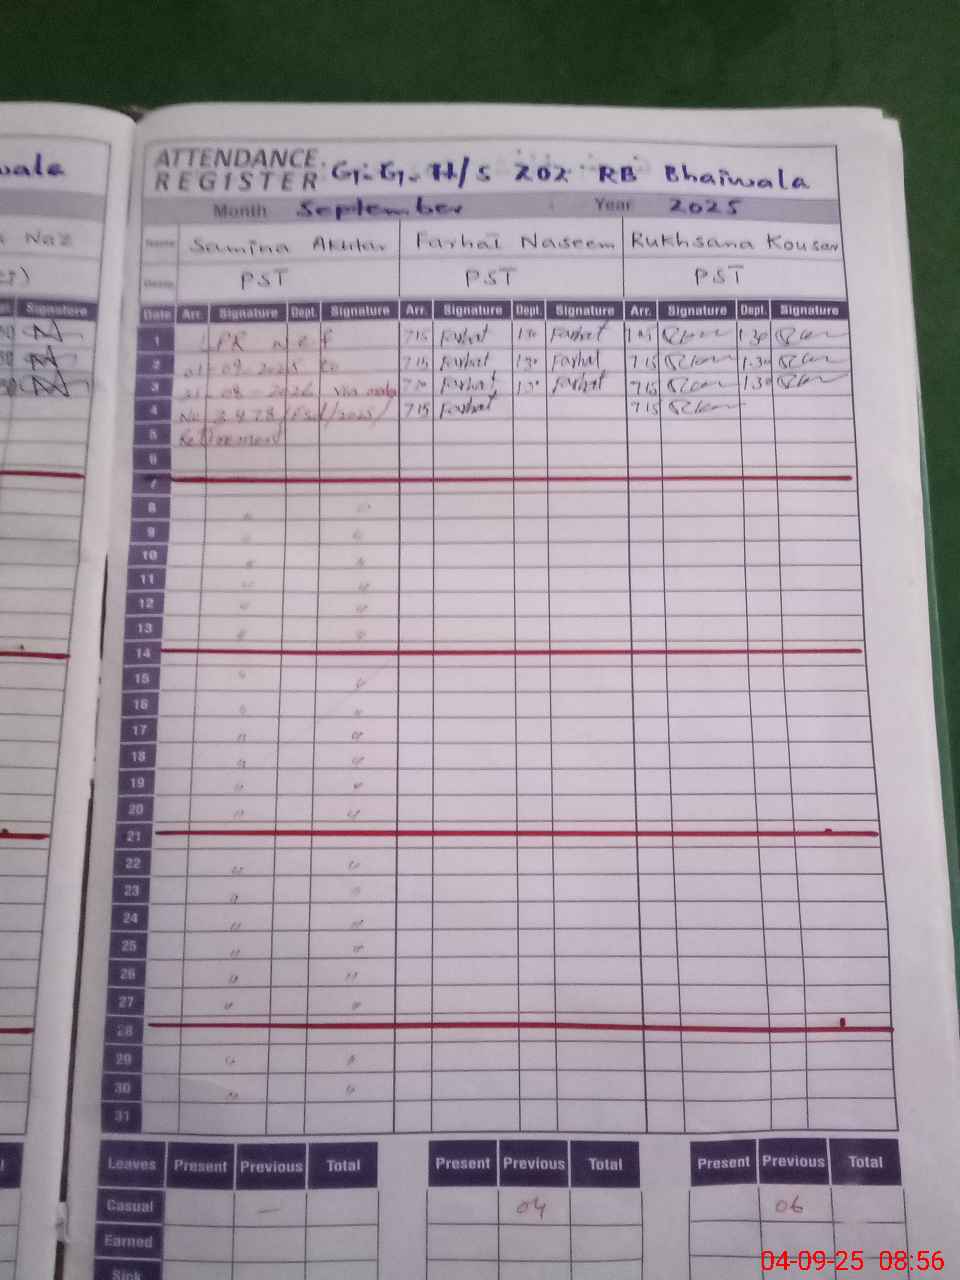 wala
ATTENDANCE
REGISTER
G.G. H/S 202 RB Bhaiwala
Month September Year 2025
Naz
Name Samina Akhtar Farhat Naseem Rukhsana Kousar
PST PST PST
Signature
Date Arr. Signature Dept. Signature Arr. Signature Dept. Signature Arr. Signature Dept. Signature
1 LPR w.e.f 715 Farhat 130 Farhat 715 1.30
2 01-09-2025 to 715 Farhat 130 Farhat 715 1.30
3 31-08-2026 Farhat 130 Farhat 715 1.30
4 No 3478 / 2025/ 715 Farhat 715
5 Retirement
6
7
8 " "
9 " "
10 " "
11 " "
12 " "
13 " "
14
15 " "
16 " "
17 " "
18 " "
19 " "
20 " "
21
22 " "
23 " "
24 " "
25 " "
26 " "
27 " "
28
29 " "
30 " "
31
Leaves Present Previous Total Present Previous Total Present Previous Total
Casual — 04 06
Earned
Sick
04-09-25 08:56